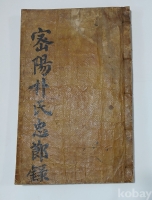 密陽朴氏忠節録
kobay